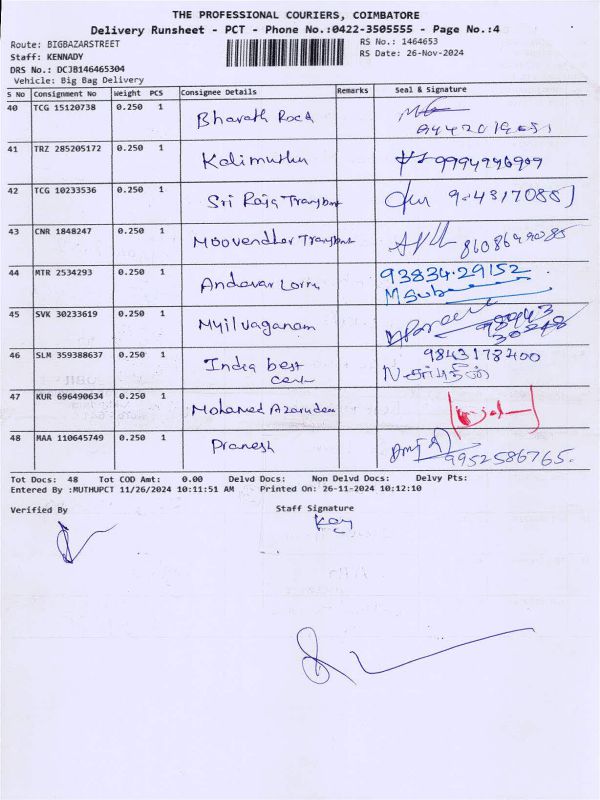 THE PROFESSIONAL COURIERS, COIMBATORE
Delivery Runsheet - PCT - Phone No.:0422-3505555 - Page No.:4
Route: BIGBAZARSTREET RS No.: 1464653
Staff: KENNADY RS Date: 26-Nov-2024
DRS No.: DCJB146465304
Vehicle: Big Bag Delivery
S No Consignment No Weight PCS Consignee Details Remarks Seal & Signature
40 TCG 15120738 0.250 1 Bharath Road
41 TRZ 285205172 0.250 1 Kalimuthu
42 TCG 10233536 0.250 1 Sri Raja Transport
43 CNR 1848247 0.250 1 Moovendhar Transport
44 MTR 2534293 0.250 1 Andavar Lorry 93834 29152
45 SVK 30233619 0.250 1 Myilvaganam
46 SLM 359388637 0.250 1 India best 9843178400
47 KUR 696490634 0.250 1 Mohamed Azarudeen
48 MAA 110645749 0.250 1 Pranesh 9952586765.
Tot Docs: 48 Tot COD Amt: 0.00 Delvd Docs: Non Delvd Docs: Delvy Pts:
Entered By :MUTHUPCT 11/26/2024 10:11:51 AM Printed On: 26-11-2024 10:12:10
Verified By Staff Signature